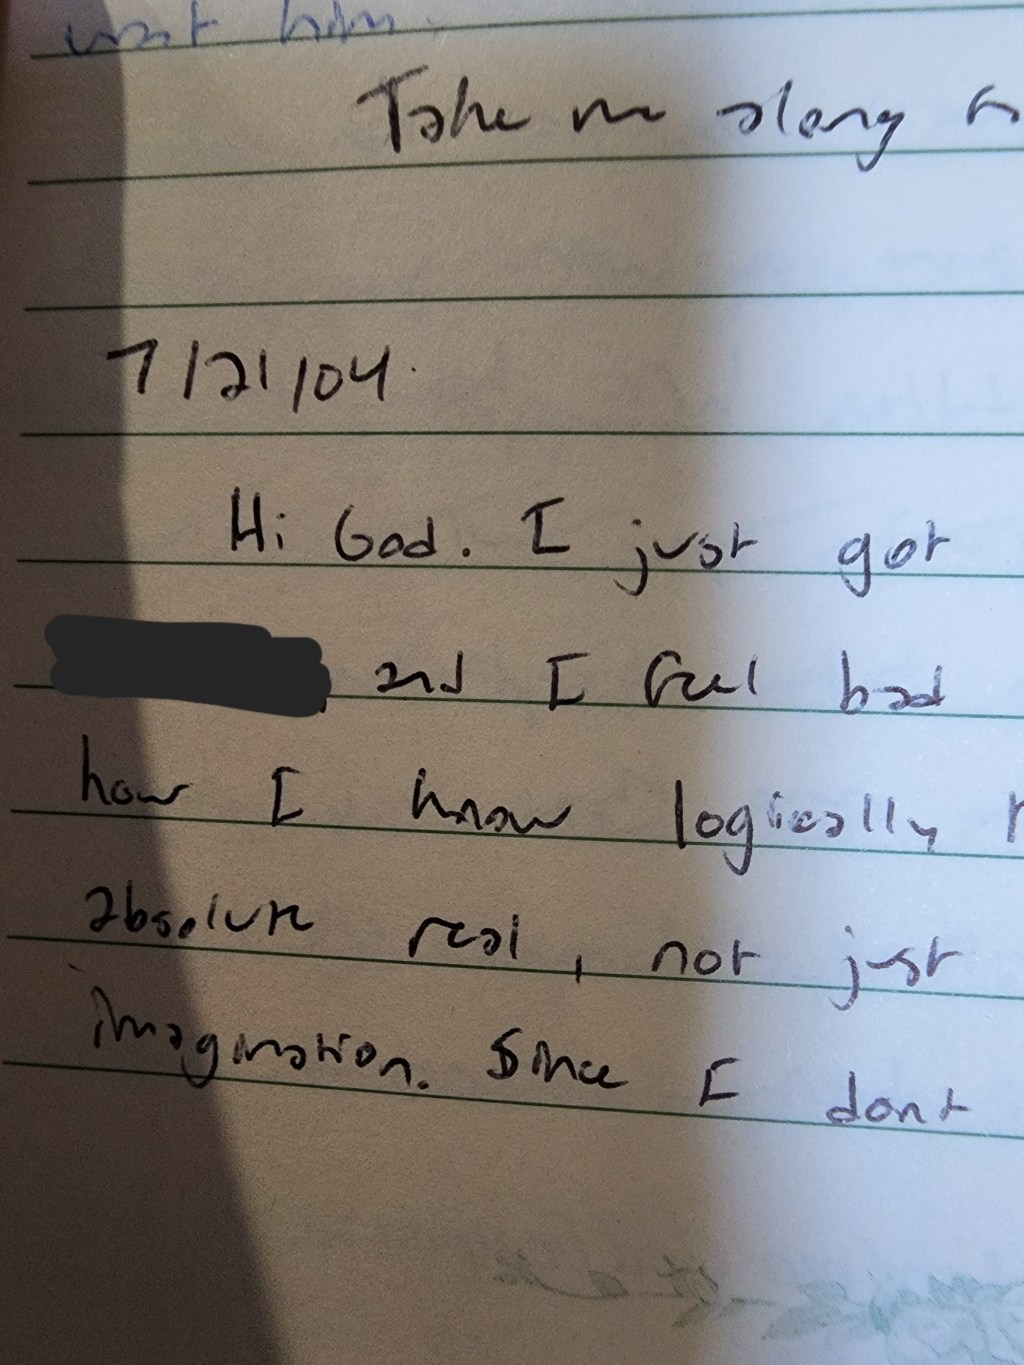 want him.
Take me along
7/21/04.
Hi God. I just got
and I feel bad
how I know logically
absolute real, not just
imagination. Since I dont